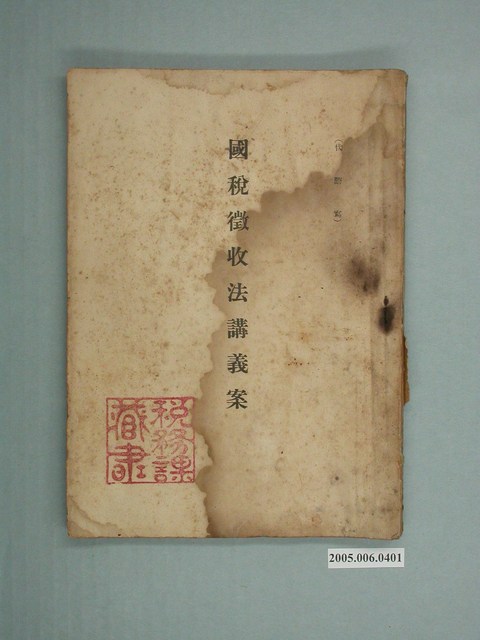 (代謄寫)
國稅徵收法講義案
稅務課
藏書
2005.006.0401